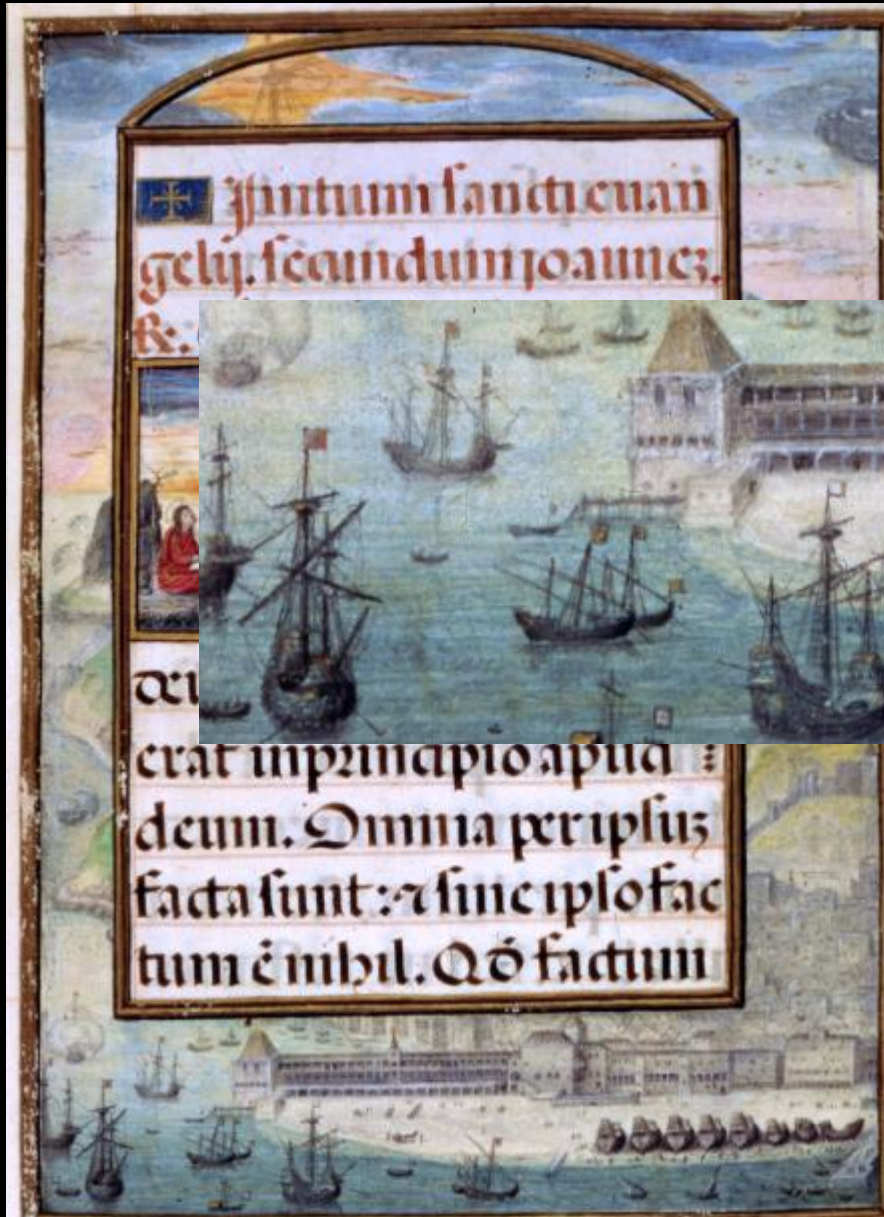 Initium sancti euan
gelij. secundum ioannez.
R.
erat in principio apud :
deum. Omnia per ipsuz
facta sunt: ⁊ sine ipso fac
tum ē nihil. Qd̄ factum